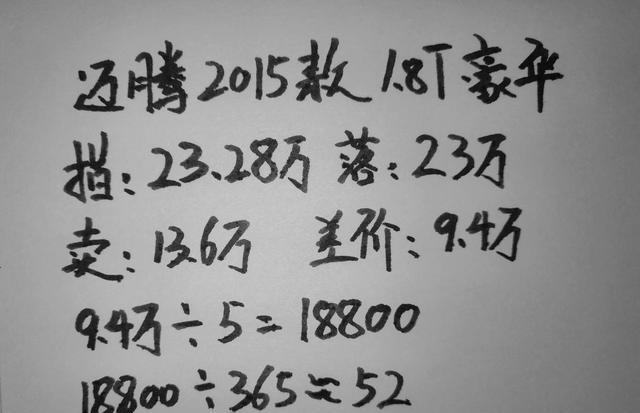 迈腾2015款 1.8T豪华
指：23.28万 落：23万
卖：13.6万 差价：9.4万
9.4万÷5=18800
18800÷365≈52